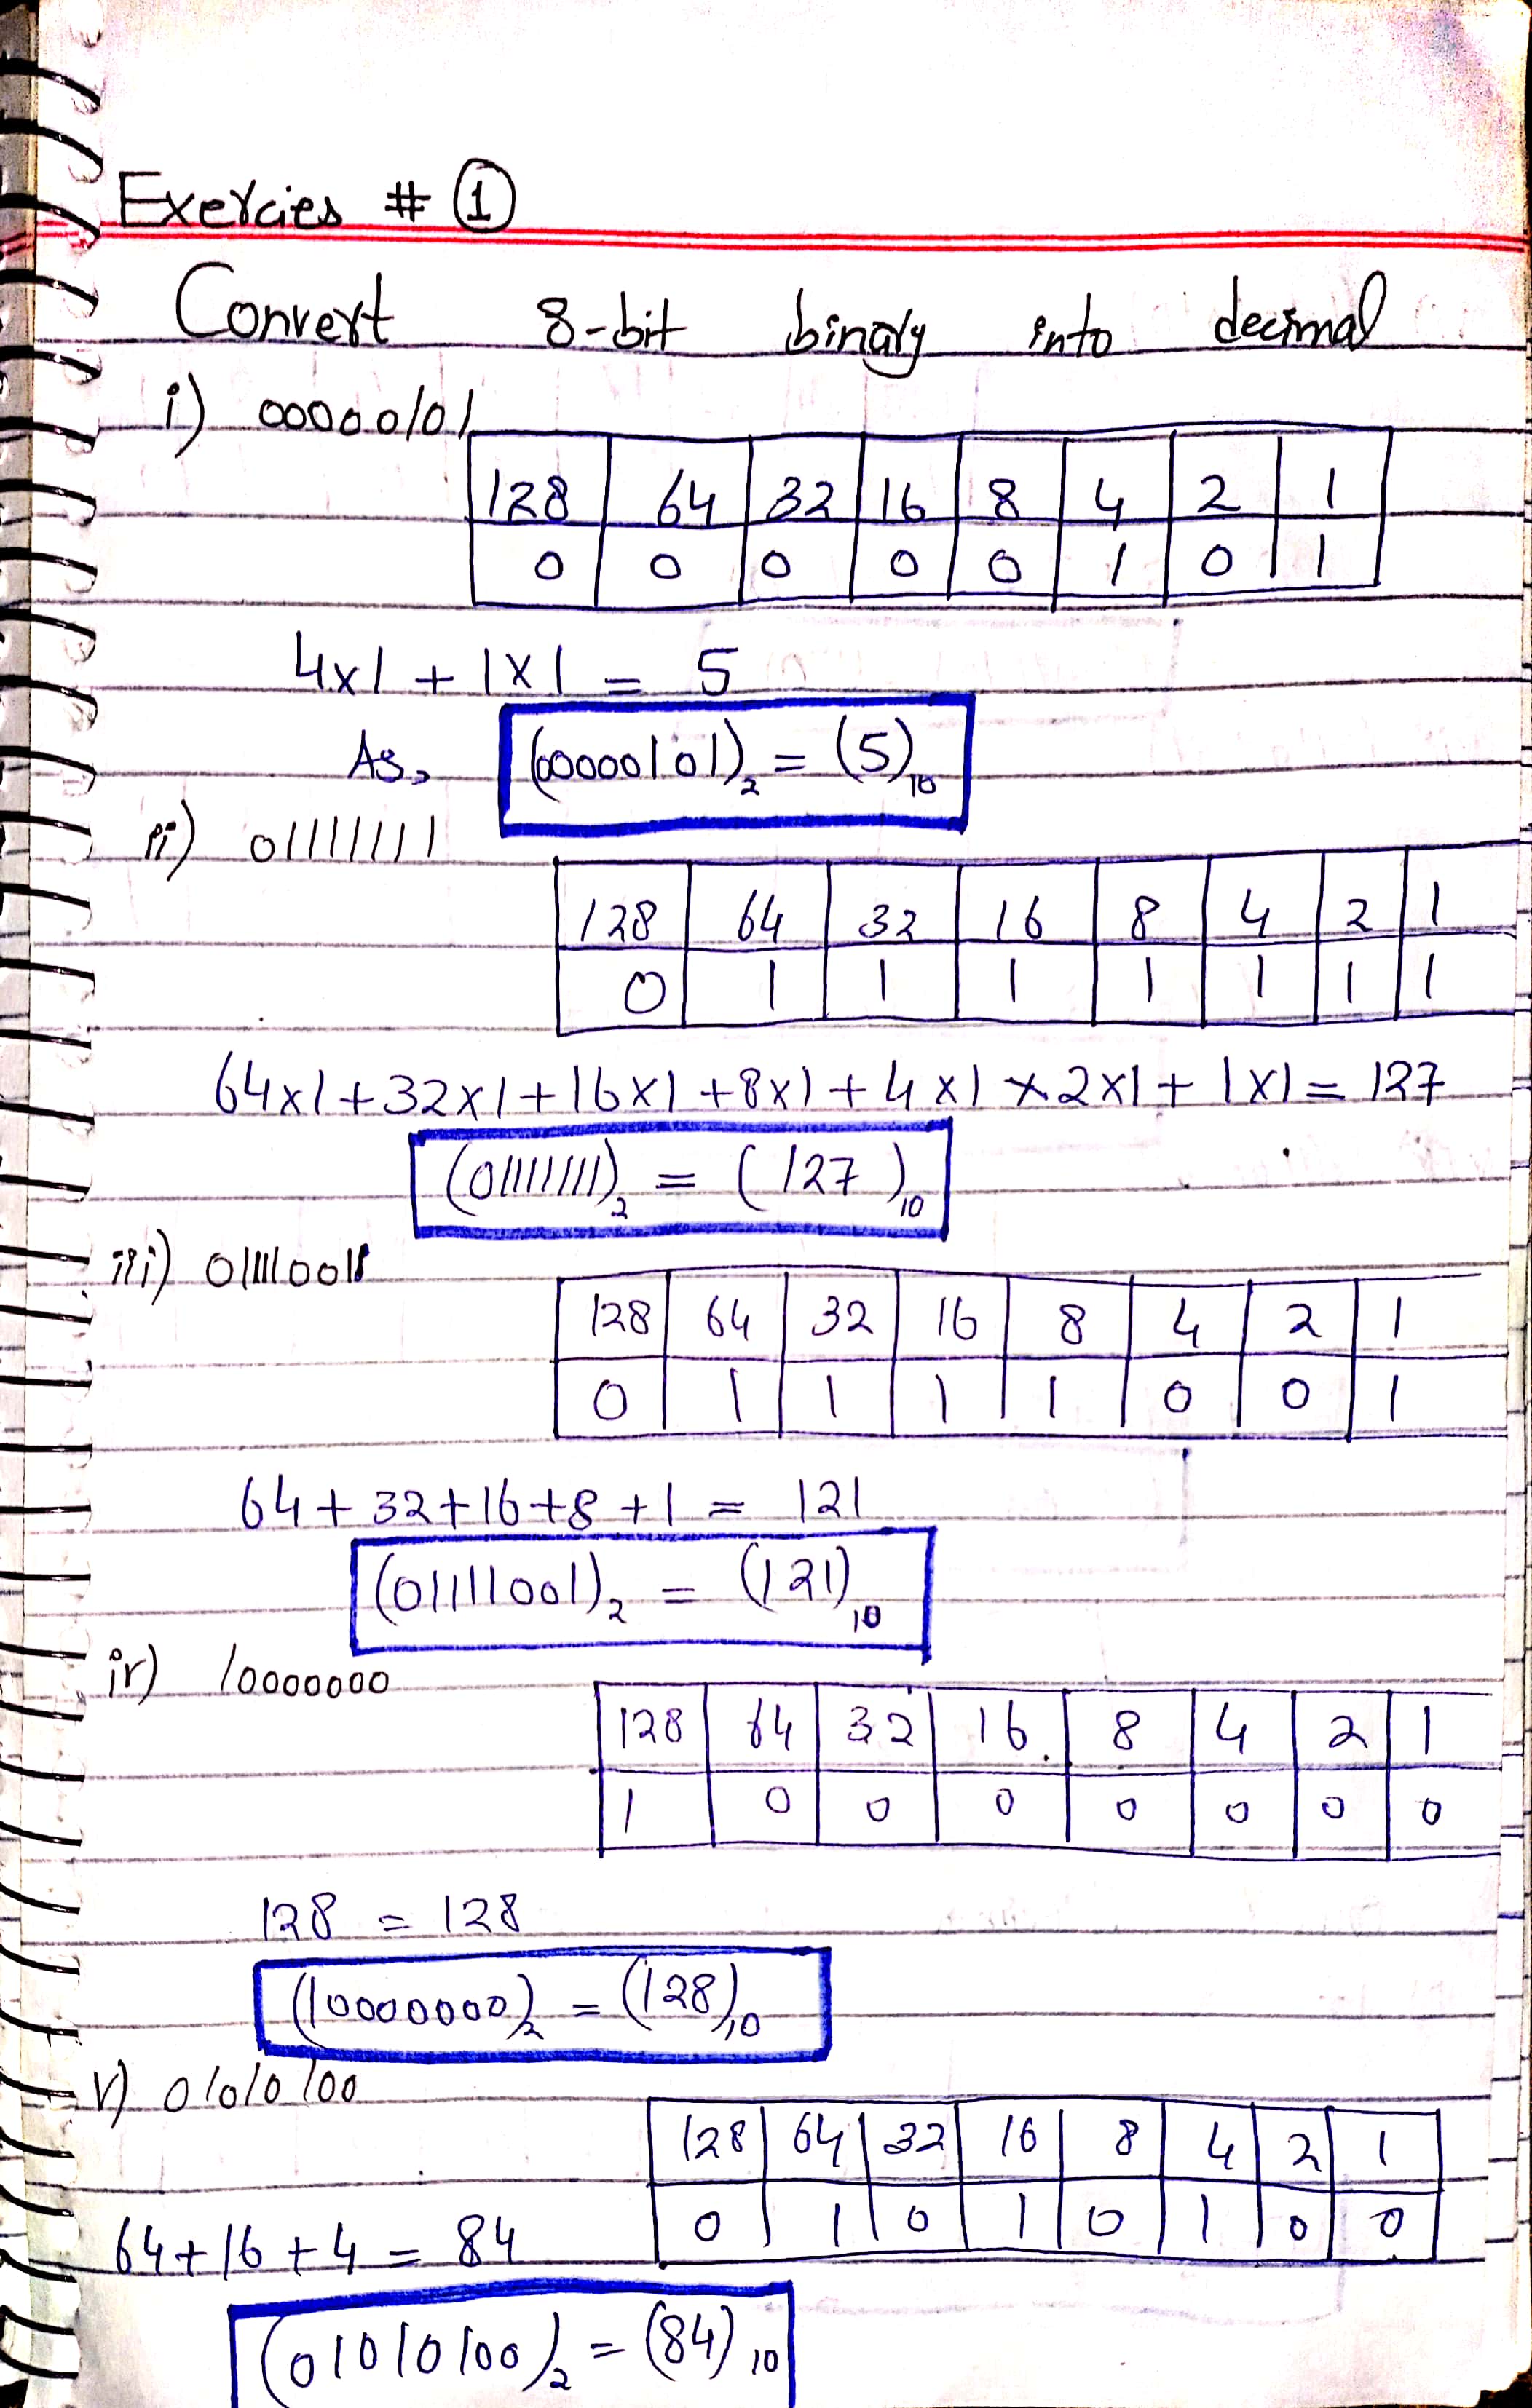 Exercies # 1
Convert 8-bit binary into decimal
i) 00000101
128 64 32 16 8 4 2 1
0 0 0 0 0 1 0 1
4x1 + 1x1 = 5
As, (00000101)₂ = (5)₁₀
ii) 01111111
128 64 32 16 8 4 2 1
0 1 1 1 1 1 1 1
64x1+32x1+16x1+8x1+4x1x2x1+1x1=127
(01111111)₂ = (127)₁₀
iii) 01111001
128 64 32 16 8 4 2 1
0 1 1 1 1 0 0 1
64+32+16+8+1 = 121
(01111001)₂ = (121)₁₀
iv) 10000000
128 64 32 16 8 4 2 1
1 0 0 0 0 0 0 0
128 = 128
(10000000)₂ = (128)₁₀
v) 01010100
128 64 32 16 8 4 2 1
0 1 0 1 0 1 0 0
64+16+4 = 84
(01010100)₂ = (84)₁₀